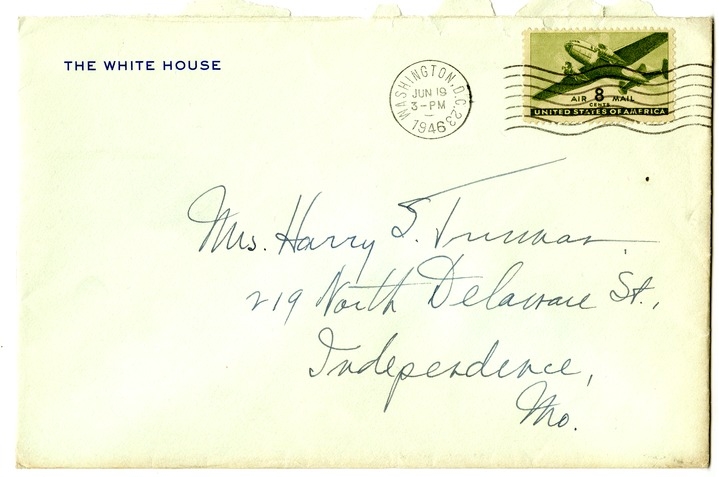 THE WHITE HOUSE
WASHINGTON, D.C. 23
JUN 19
3-PM
1946
AIR 8 MAIL
CENTS
UNITED STATES OF AMERICA
Mrs. Harry S. Truman
219 North Delaware St.,
Independence,
Mo.